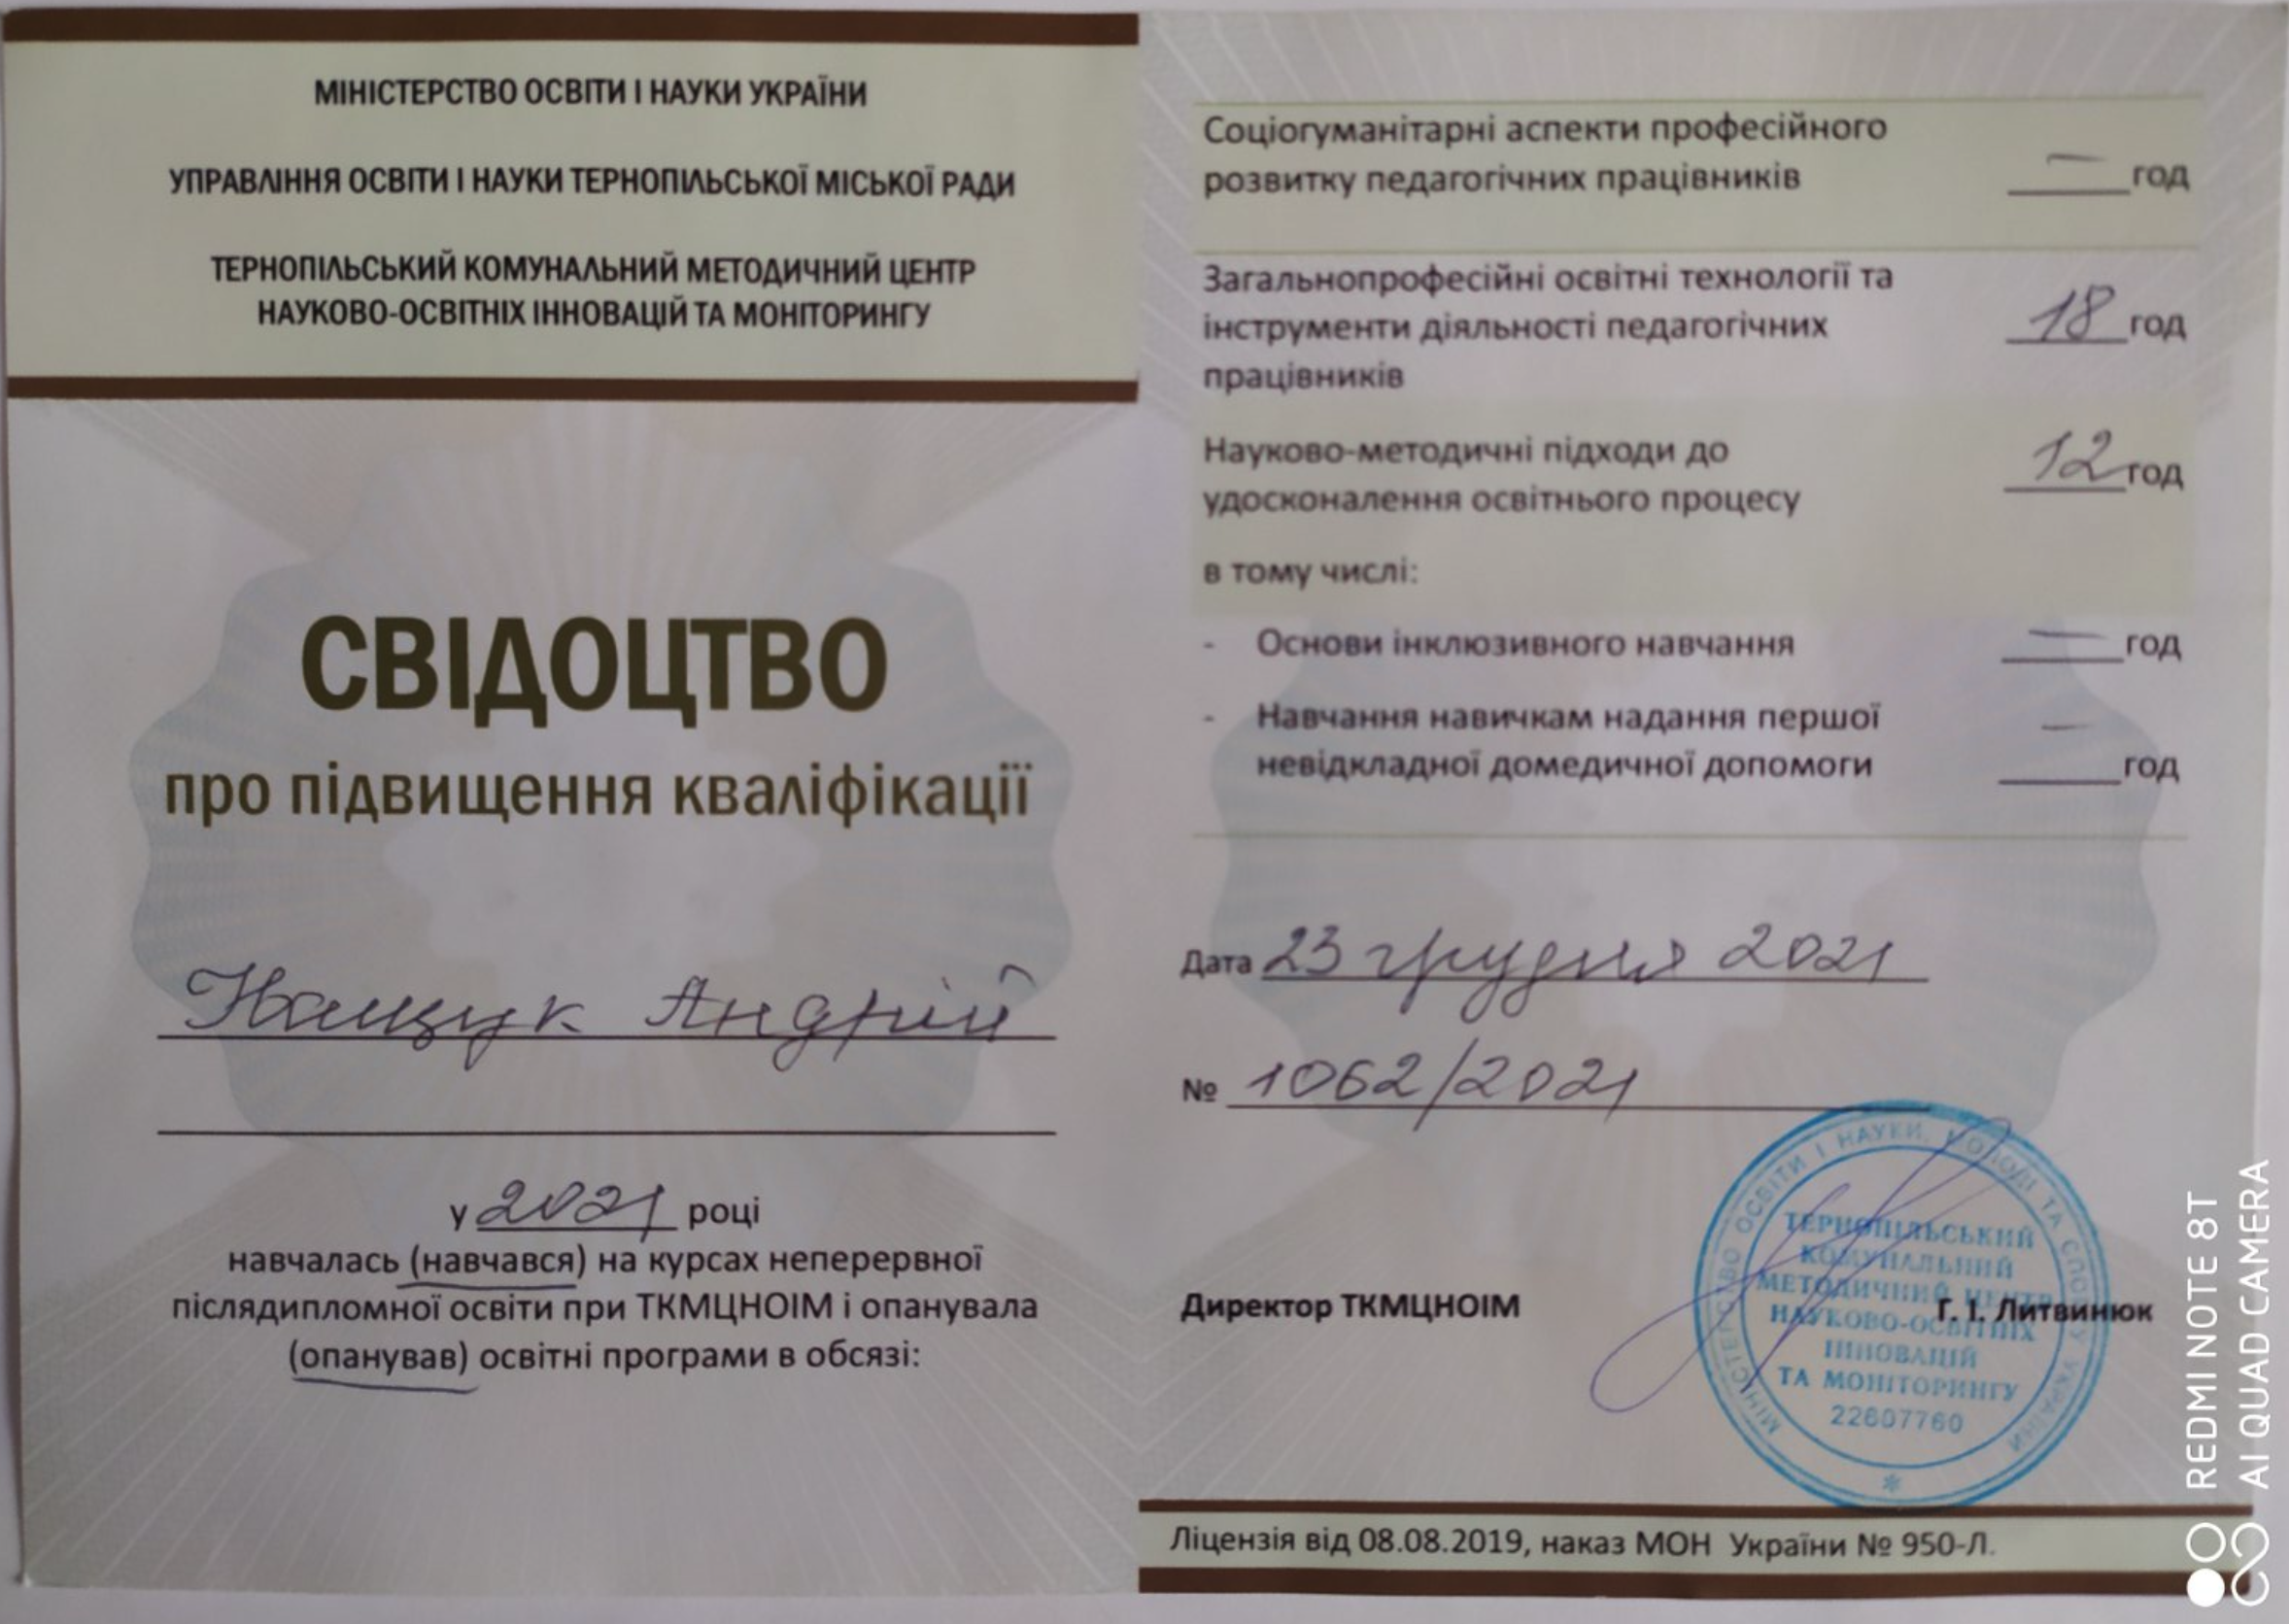 МІНІСТЕРСТВО ОСВІТИ І НАУКИ УКРАЇНИ
УПРАВЛІННЯ ОСВІТИ І НАУКИ ТЕРНОПІЛЬСЬКОЇ МІСЬКОЇ РАДИ
ТЕРНОПІЛЬСЬКИЙ КОМУНАЛЬНИЙ МЕТОДИЧНИЙ ЦЕНТР
НАУКОВО-ОСВІТНІХ ІННОВАЦІЙ ТА МОНІТОРИНГУ
СВІДОЦТВО
про підвищення кваліфікації
Нащук Андрій
у 2021 році
навчалась (навчався) на курсах неперервної
післядипломної освіти при ТКМЦНОІМ і опанувала
(опанував) освітні програми в обсязі:
Соціогуманітарні аспекти професійного
розвитку педагогічних працівників — год
Загальнопрофесійні освітні технології та
інструменти діяльності педагогічних 18 год
працівників
Науково-методичні підходи до 12 год
удосконалення освітнього процесу
в тому числі:
- Основи інклюзивного навчання — год
- Навчання навичкам надання першої —
невідкладної домедичної допомоги год
Дата 23 грудня 2021
№ 1062/2021
Директор ТКМЦНОІМ Г. І. Литвинюк
МІНІСТЕРСТВО ОСВІТИ І НАУКИ, МОЛОДІ ТА СПОРТУ УКРАЇНИ
ТЕРНОПІЛЬСЬКИЙ
КОМУНАЛЬНИЙ
МЕТОДИЧНИЙ ЦЕНТР
НАУКОВО-ОСВІТНІХ
ІННОВАЦІЙ
ТА МОНІТОРИНГУ
22607760
Ліцензія від 08.08.2019, наказ МОН України № 950-Л.
REDMI NOTE 8T
AI QUAD CAMERA